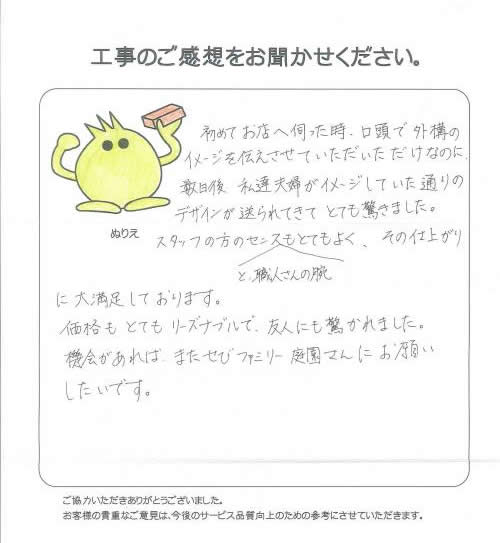 工事のご感想をお聞かせください。
初めてお店へ伺った時、口頭で外構の
イメージを伝えさせていただいただけなのに、
数日後、私達夫婦がイメージしていた通りの
デザインが送られてきてとても驚きました。
ぬりえ
スタッフの方のセンスもとてもよく、その仕上がり
と、職人さんの腕
に大満足しております。
価格もとてもリーズナブルで、友人にも驚かれました。
機会があれば、またぜひファミリー庭園さんにお願い
したいです。
ご協力いただきありがとうございました。
お客様の貴重なご意見は、今後のサービス品質向上のための参考にさせていただきます。